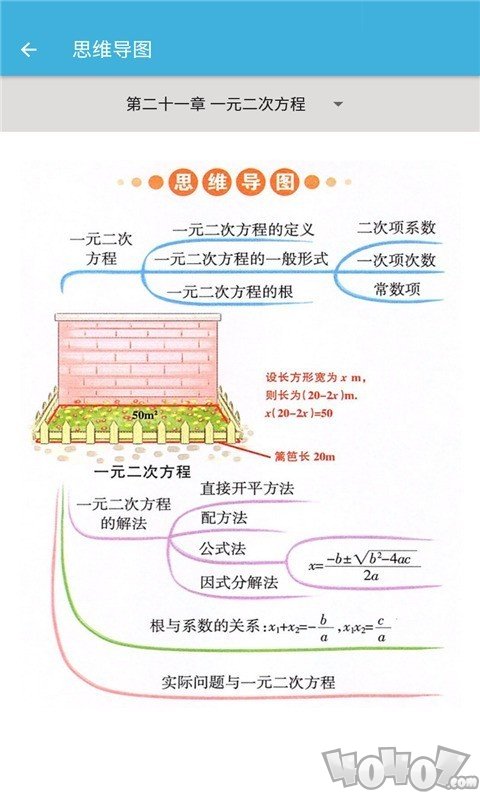 思维导图
第二十一章 一元二次方程
思维导图
一元二次
方程
一元二次方程的定义
一元二次方程的一般形式
一元二次方程的根
二次项系数
一次项次数
常数项
设长方形宽为 x m，
则长为(20-2x)m.
x(20-2x)=50
50m²
篱笆长 20m
一元二次方程
一元二次方程
的解法
直接开平方法
配方法
公式法
因式分解法
x=\frac{-b±\sqrt{b²-4ac}}{2a}
根与系数的关系：x₁+x₂=-\frac{b}{a}，x₁x₂=\frac{c}{a}
实际问题与一元二次方程
40407.com